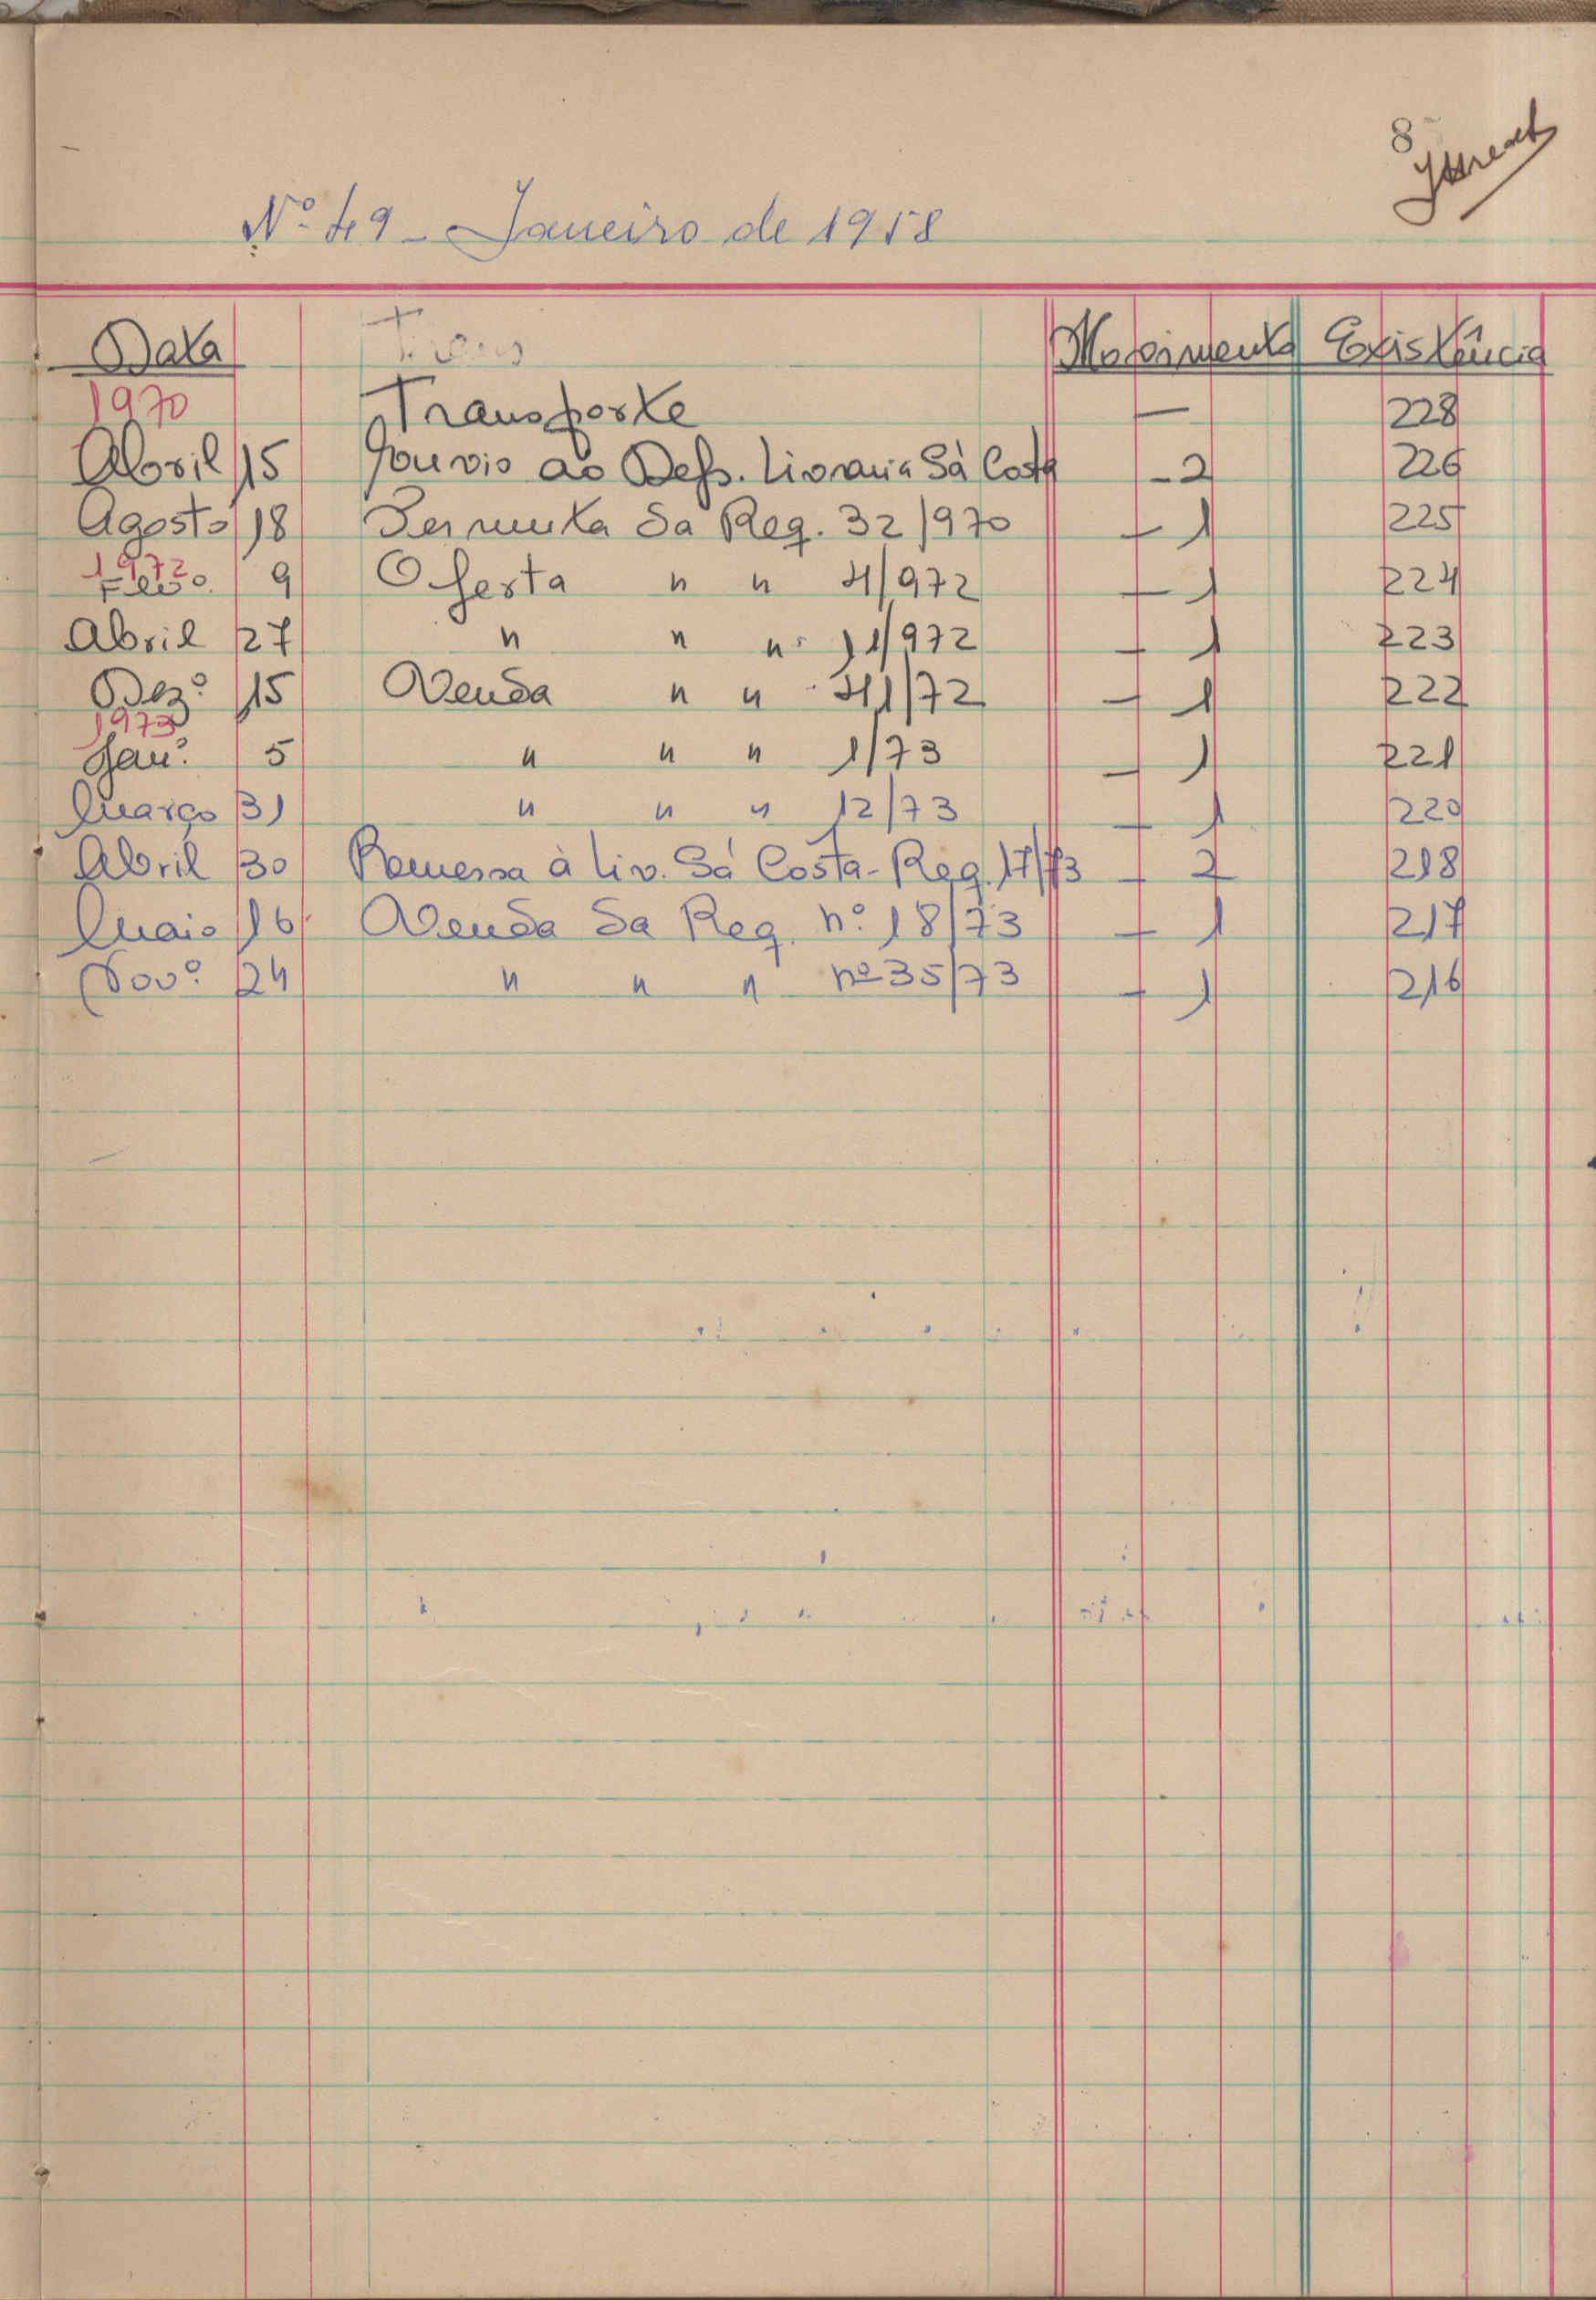 8
Nº 49 - Janeiro de 1958
Data Trans Movimento Existência
1970 Transporte — 228
Abril 15 ao Dep. Livraria Sá Costa - 2 226
Agosto 18 Permuta Sa Req. 32/970 - 1 225
1972
Fevº. 9 Oferta " " 4/972 - 1 224
Abril 27 " " " 11/972 - 1 223
Dezº 15 Venda " " 41/72 - 1 222
1973
Janº. 5 " " " 1/73 - 1 221
Março 31 " " " 12/73 - 1 220
Abril 30 Remessa à Liv. Sá Costa - Req. 17/73 - 2 218
Maio 16 Venda Sa Req. nº 18/73 - 1 217
Novº. 24 " " " nº 35/73 - 1 216